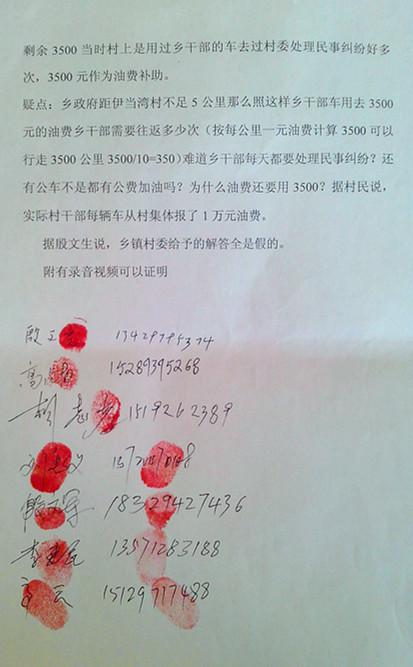 剩余3500当时村上是用过乡干部的车去过村委处理民事纠纷好多
次，3500元作为油费补助。
疑点：乡政府距伊当湾村不足5公里那么照这样乡干部车用去3500
元的油费乡干部需要往返多少次（按每公里一元油费计算3500可以
行走3500公里3500/10=350）难道乡干部每天都要处理民事纠纷？还
有公车不是都有公费加油吗？为什么油费还要用3500？据村民说，
实际村干部每辆车从村集体报了1万元油费。
据殷文生说，乡镇村委给予的解答全是假的。
附有录音视频可以证明
殷
高 15289395268
胡志 1519262389
18329427436
李 13571283188
15129717488